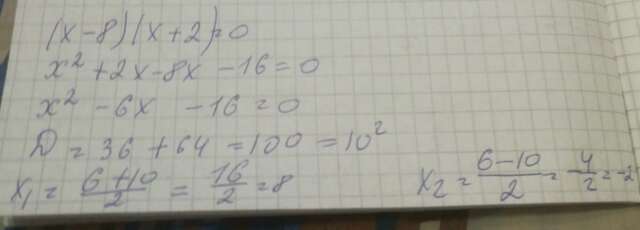 (x-8)(x+2)=0
x² +2x-8x -16=0
x² -6x -16=0
D = 36 +64 =100 =10²
x₁ = (6+10)/2 = 16/2 =8 x₂ = (6-10)/2 = -4/2 =-2